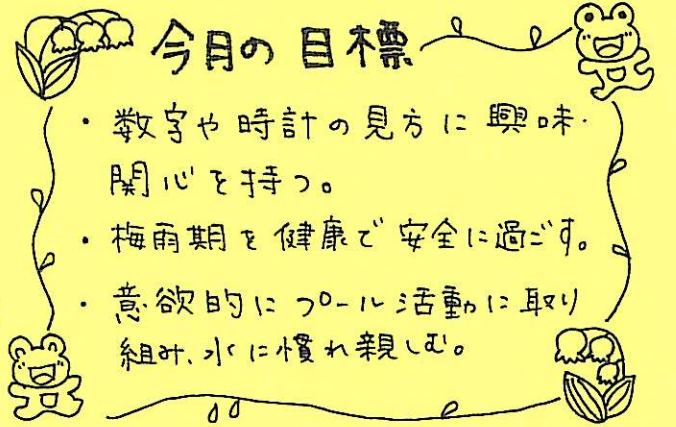 今月の目標
・数字や時計の見方に興味・
関心を持つ。
・梅雨期を健康で安全に過ごす。
・意欲的にプール活動に取り
組み、水に慣れ親しむ。